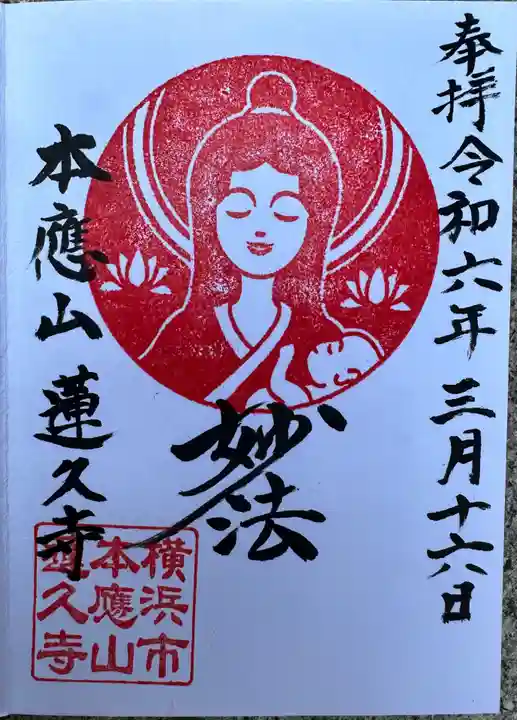 奉拝令和六年三月十六日
妙法
本應山蓮久寺
横浜市
本應山
蓮久寺